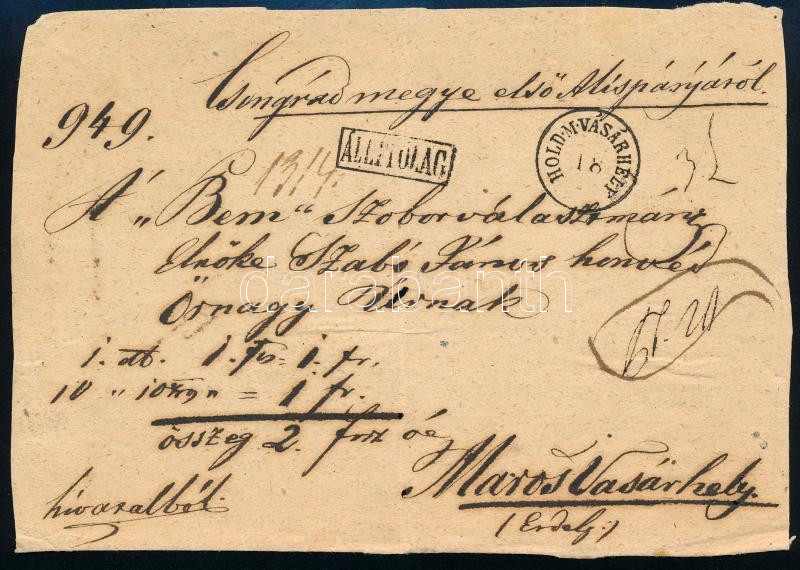 Csongrád megye első Alispánjáról.
949.
ÁLLITOLAG
HOLD·M·VÁSÁRHELY
18
13/4.
A „Bem" Szoborválasztmány
Elnöke Szabó János honvéd
Örnagy Urnak
darabanth
1. db. 1. fr = 1. fr.
10 „ 10 kr „ = 1 fr.
összeg 2. frt óé
Maros Vásárhely.
(Erdély:)
hivatalból.